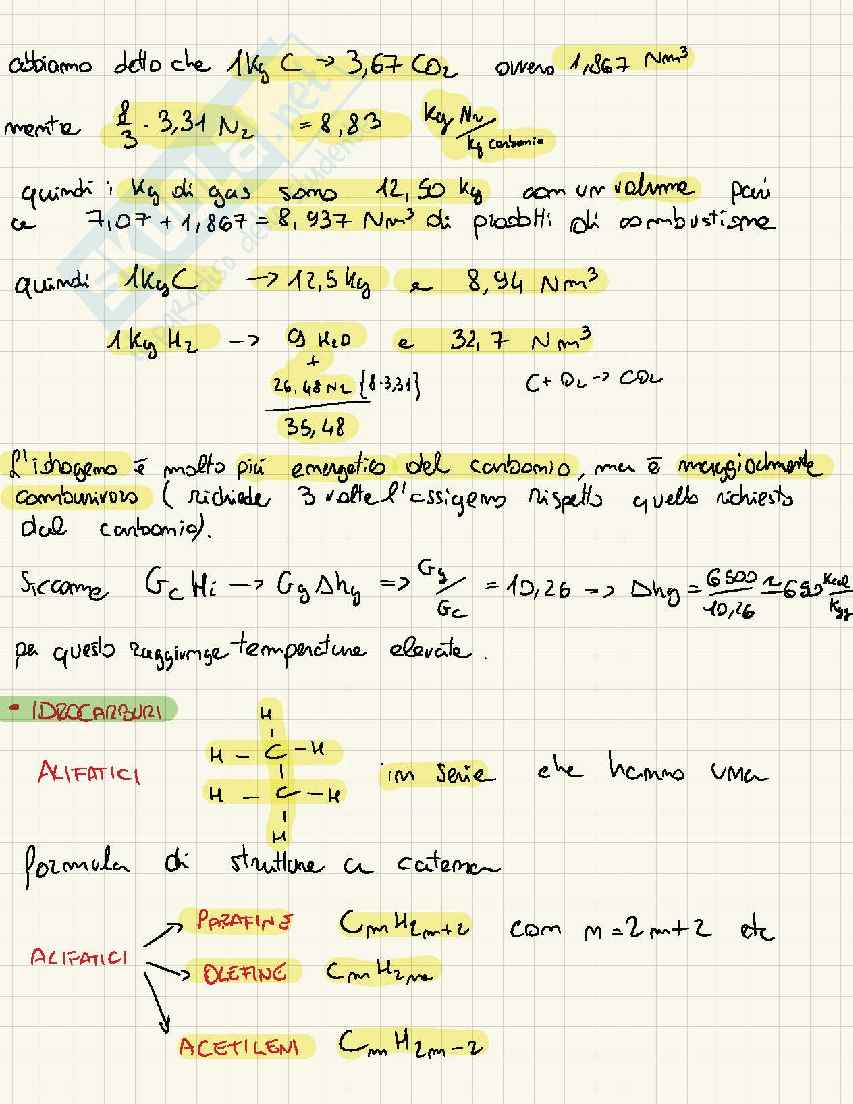 abbiamo detto che 1Kg C → 3,67 CO2 ovvero 1,867 Nm³
mentre 8/3 · 3,31 N2 = 8,83 Kg N2/Kg carbonio
quindi i Kg di gas sono 12,50 kg con un volume pari
a 7,07 + 1,867 = 8,937 Nm³ di prodotti di combustione
quindi 1KgC → 12,5 Kg e 8,94 Nm³
1 Kg H2 → 9 H2O e 32,7 Nm³
+
26,48 N2 {8·3,31} C + O2 → CO2
35,48
L'idrogeno è molto più energetico del carbonio, ma è maggiormente
comburivoro ( richiede 3 volte l'ossigeno rispetto quello richiesto
dal carbonio).
Siccome Gc Hi → Gg Δhg => Gg/Gc = 10,26 → Δhg = 6500/10,26 ≃ 650 Kcal/Kgg
per questo raggiunge temperature elevate.
• IDROCARBURI
H
H - C - H
ALIFATICI in serie che hanno una
H - C - H
H
formula di struttura a catena
PARAFINE CmH2m+2 com n = 2m+2 etc
ALIFATICI
OLEFINE CmH2m
ACETILENI CmH2m-2